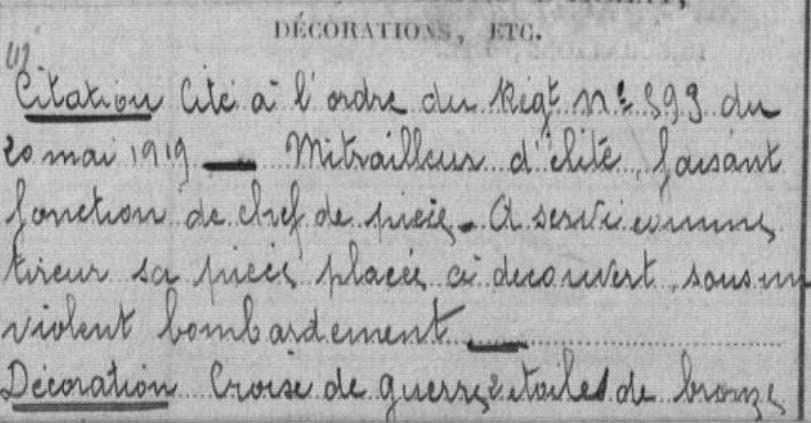 DÉCORATIONS, ETC.
(1)
Citation Cité à l'ordre du Régt n° 593 du
20 mai 1919 — Mitrailleur d'élite, faisant
fonction de chef de pièce. A servi comme
tireur sa pièce placée à découvert, sous un
violent bombardement —
Décoration Croise de guerre 2 étoiles de bronze